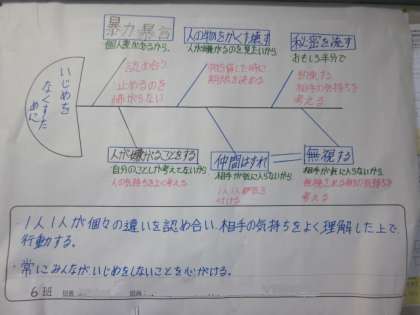 いじめを
なくすた
めに
暴力暴言
個人差があるから、
認め合う
止めるのを
怖がらない
人の物をかくす壊す
人が嫌がるのを見たいから
秘密を流す
おもしろ半分で
相手の気持ちを
考える
人が嫌がることをする
自分のことしか考えてないから
人の気持ちをよく考える
仲間はずれ
相手が気に入らないから
無視する
相手が気に入らないから
考える
1人1人が個々の違いを認め合い、相手の気持ちをよく理解した上で、
行動する。
・常にみんながいじめをしないことを心がける。
6班